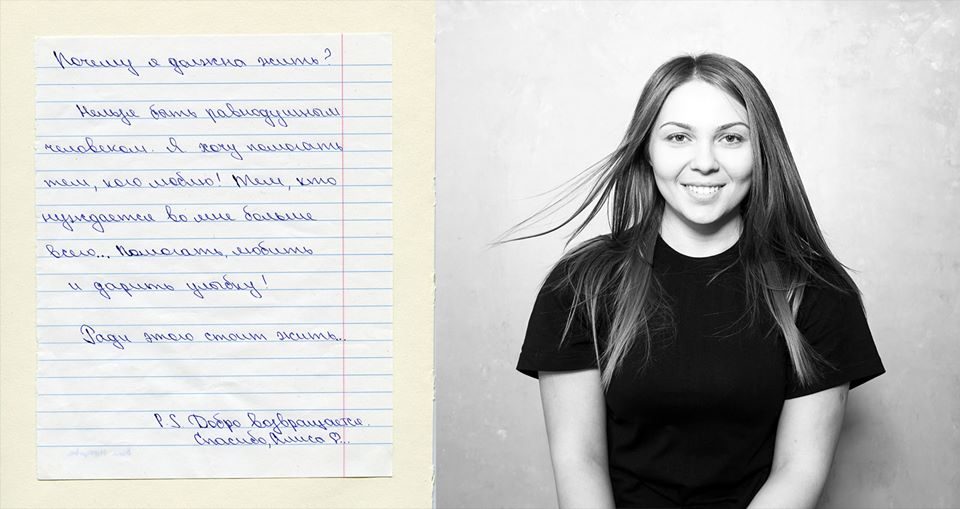 Почему я должна жить?
Нельзя быть равнодушном
человеком. Я хочу помогать
тем, кого люблю! Тем, кто
нуждается во мне больше
всего... Помогать, любить
и дарить улыбку!
Ради этого стоит жить..
P.S. Добро возвращается.
Спасибо, Алиса Р...